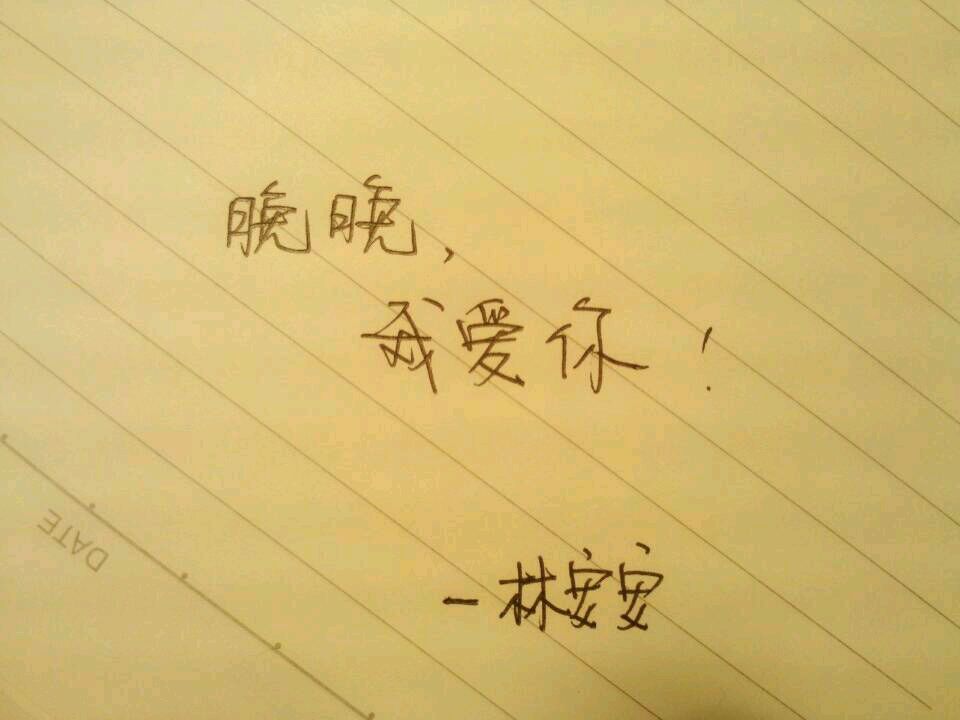 晚晚，
我爱你！
—林安安
DATE